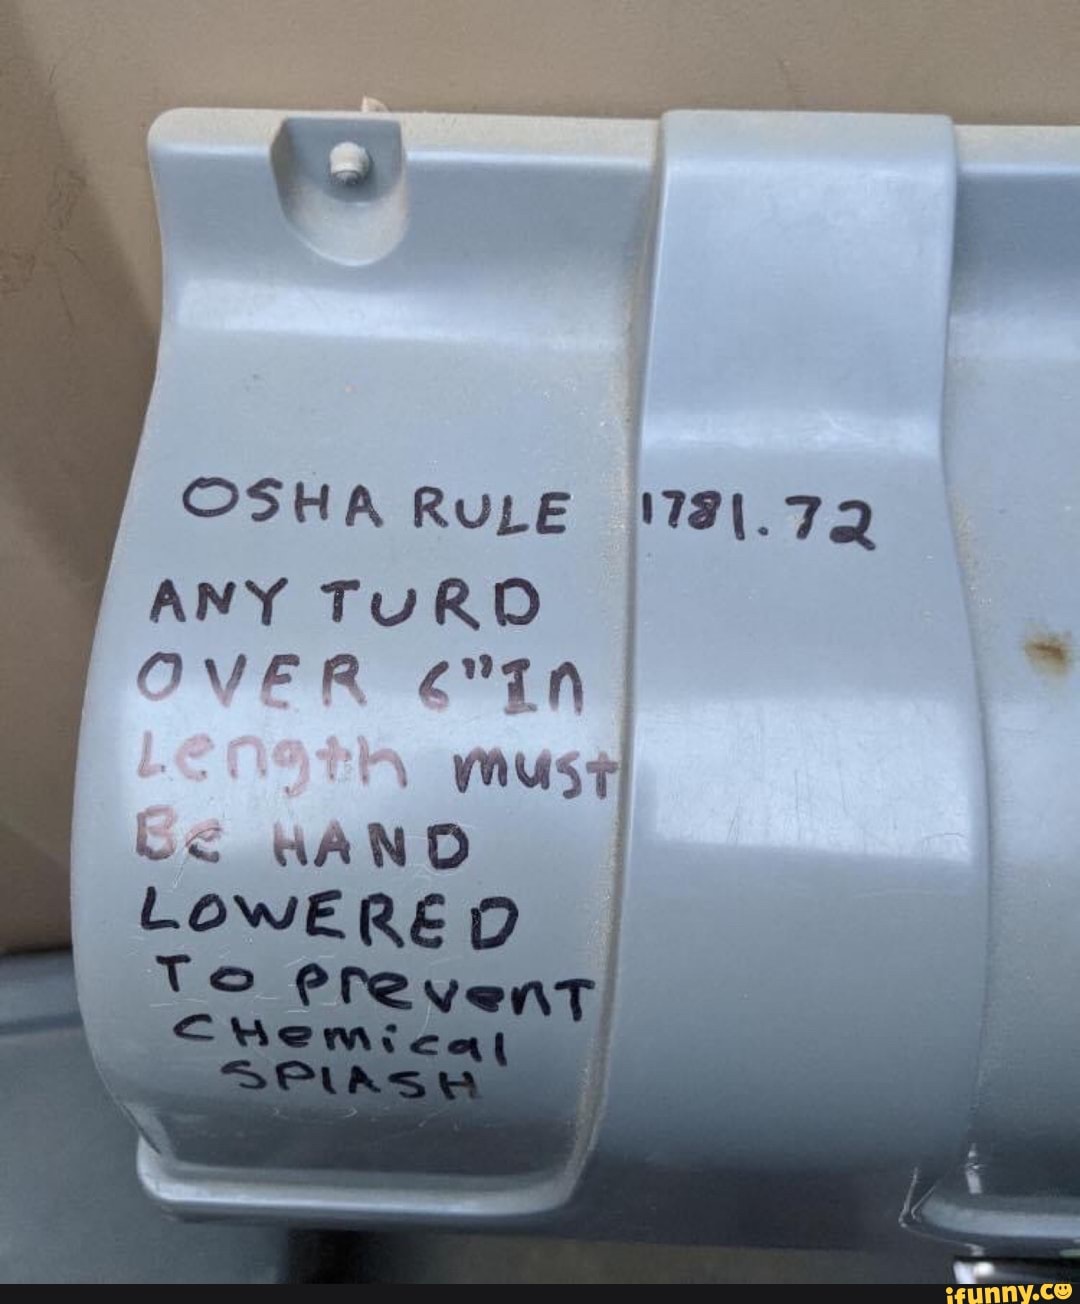 OSHA RULE 1781.72
ANY TURD
OVER 6" In
Length must
Be HAND
LOWERED
To prevenT
CHemical
SPlASH
ifunny.co